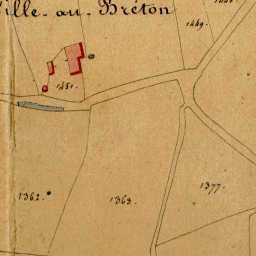 Ville-au-Bréton
1449.
1451.
1362.
1363.
1377.